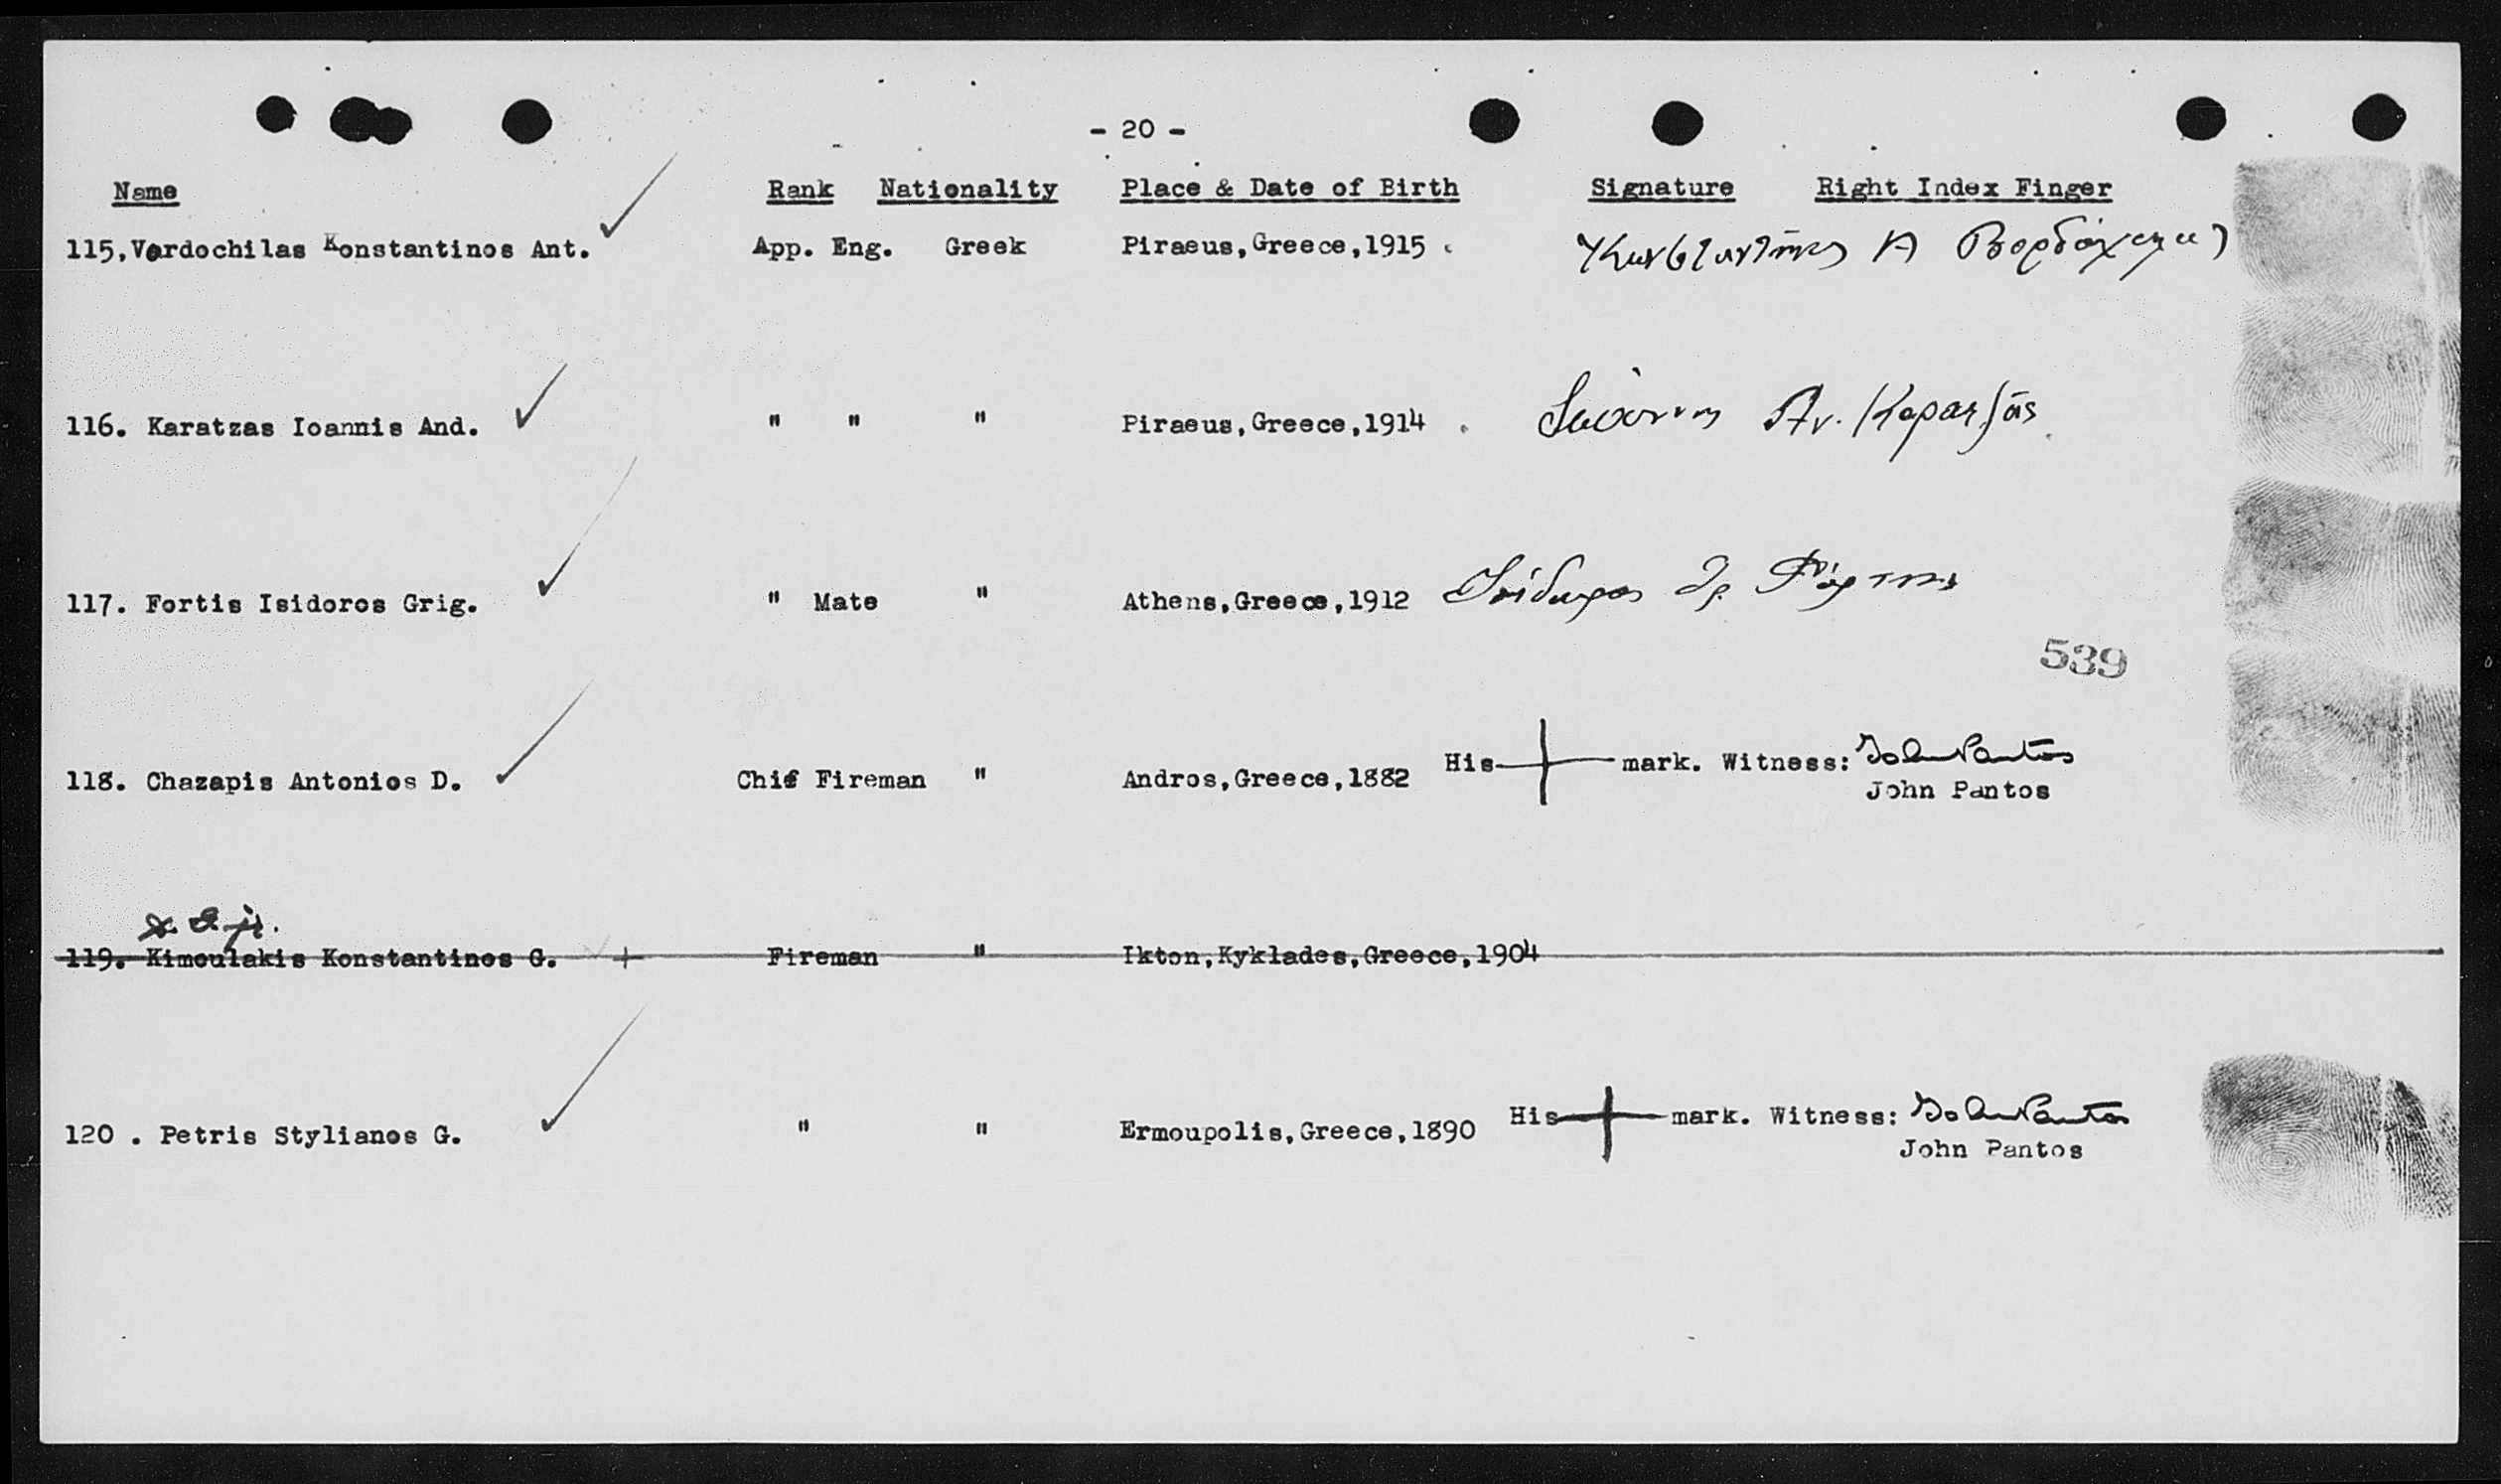 - 20 -
Name Rank Nationality Place & Date of Birth Signature Right Index Finger
115. Vordochilas Konstantinos Ant. App. Eng. Greek Piraeus, Greece, 1915 Κωνσταντῖνος Α Βορδόχυλας
116. Karatzas Ioannis And. " " " Piraeus, Greece, 1914 . Ἰωάννης Αν. Καρατζᾶς
117. Fortis Isidoros Grig. " Mate " Athens, Greece, 1912 Ἰσίδωρος Γρ. Φόρτης
539
118. Chazapis Antonios D. Chief Fireman " Andros, Greece, 1882 His + mark. Witness: John Pantos
John Pantos
119. Kimoulakis Konstantinos G. + Fireman " Ikton, Kyklades, Greece, 1904
120 . Petris Stylianos G. " " Ermoupolis, Greece, 1890 His + mark. Witness: John Pantos
John Pantos